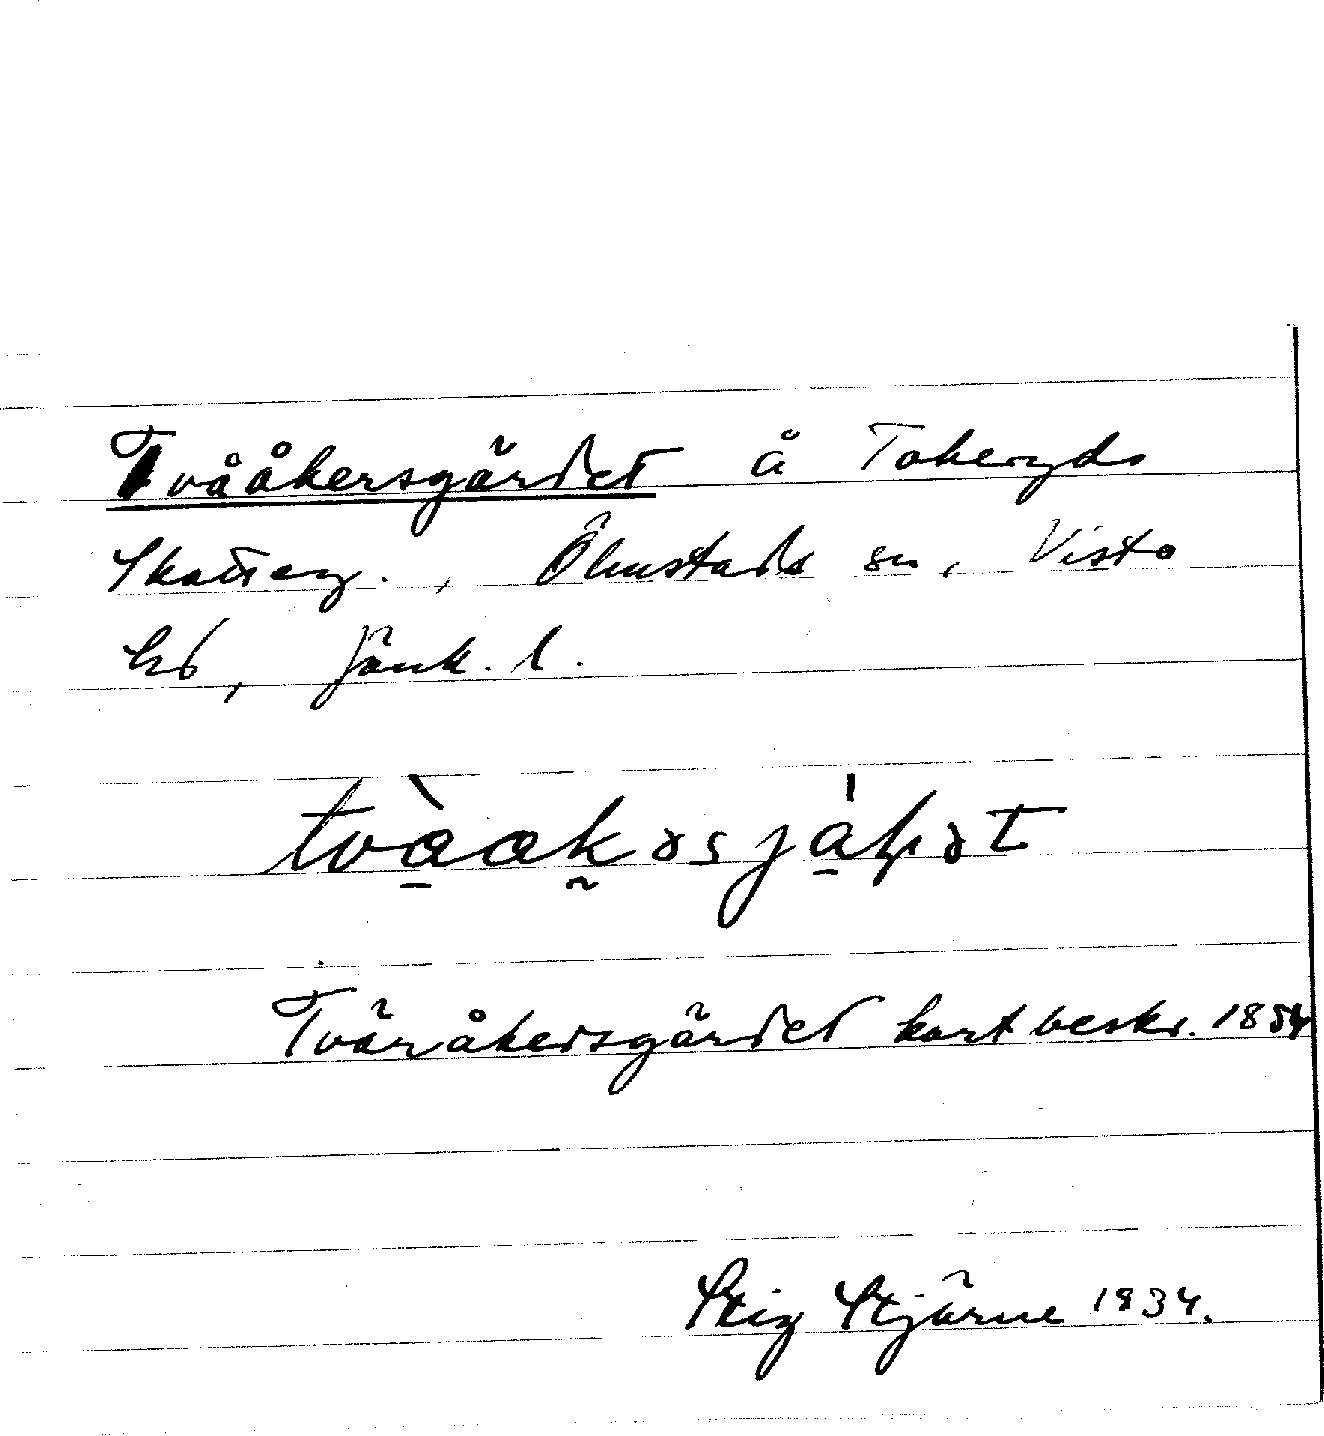 Tvååkersgärdet å Takeryds
Skatteg., Ölmstads sn, Vista
hd, Jönk. l.
tvàakəsjáḥət
Tväråkersgärdet kartbeskr. 1854
Stig Stjärne 1934.